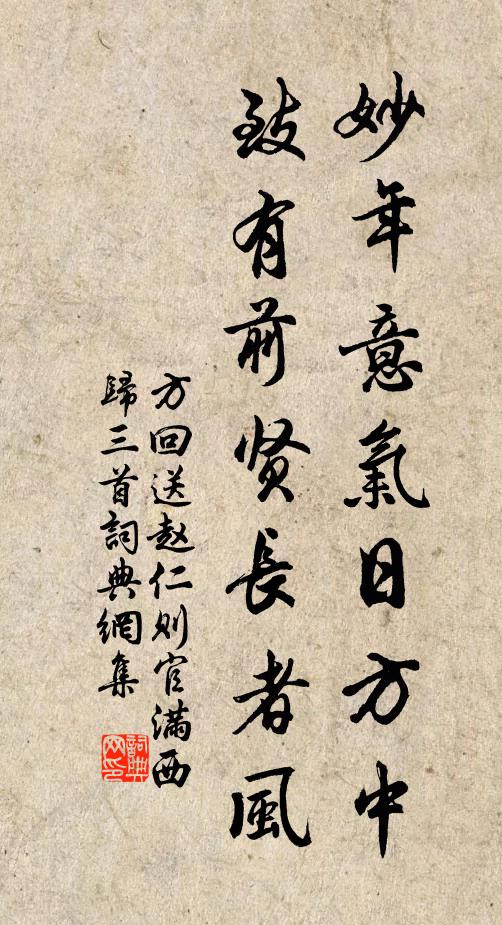 妙年意氣日方中
致有前贤長者風
方回送赵仁则官滿西
歸三首詞典網集
詞典
网印